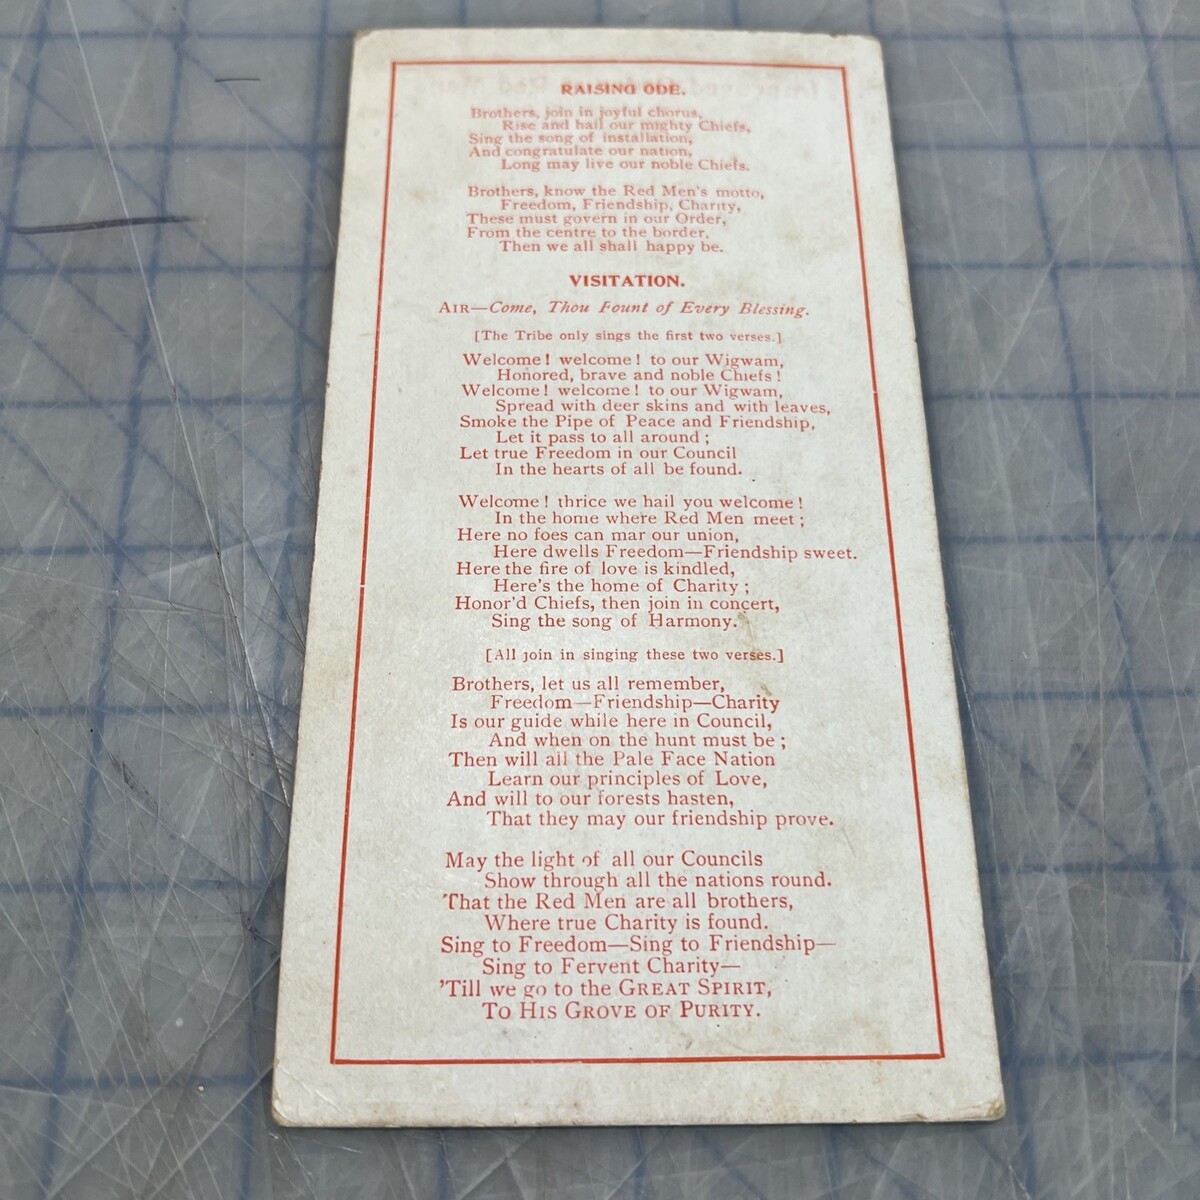 RAISING ODE.
Brothers, join in joyful chorus,
Rise and hail our mighty Chiefs,
Sing the song of installation,
And congratulate our nation,
Long may live our noble Chiefs.
Brothers, know the Red Men's motto,
Freedom, Friendship, Charity,
These must govern in our Order,
From the centre to the border,
Then we all shall happy be.
VISITATION.
AIR—Come, Thou Fount of Every Blessing.
[The Tribe only sings the first two verses.]
Welcome! welcome! to our Wigwam,
Honored, brave and noble Chiefs!
Welcome! welcome! to our Wigwam,
Spread with deer skins and with leaves,
Smoke the Pipe of Peace and Friendship,
Let it pass to all around;
Let true Freedom in our Council
In the hearts of all be found.
Welcome! thrice we hail you welcome!
In the home where Red Men meet;
Here no foes can mar our union,
Here dwells Freedom—Friendship sweet.
Here the fire of love is kindled,
Here's the home of Charity;
Honor'd Chiefs, then join in concert,
Sing the song of Harmony.
[All join in singing these two verses.]
Brothers, let us all remember,
Freedom—Friendship—Charity
Is our guide while here in Council,
And when on the hunt must be;
Then will all the Pale Face Nation
Learn our principles of Love,
And will to our forests hasten,
That they may our friendship prove.
May the light of all our Councils
Show through all the nations round.
That the Red Men are all brothers,
Where true Charity is found.
Sing to Freedom—Sing to Friendship—
Sing to Fervent Charity—
'Till we go to the GREAT SPIRIT,
TO HIS GROVE OF PURITY.